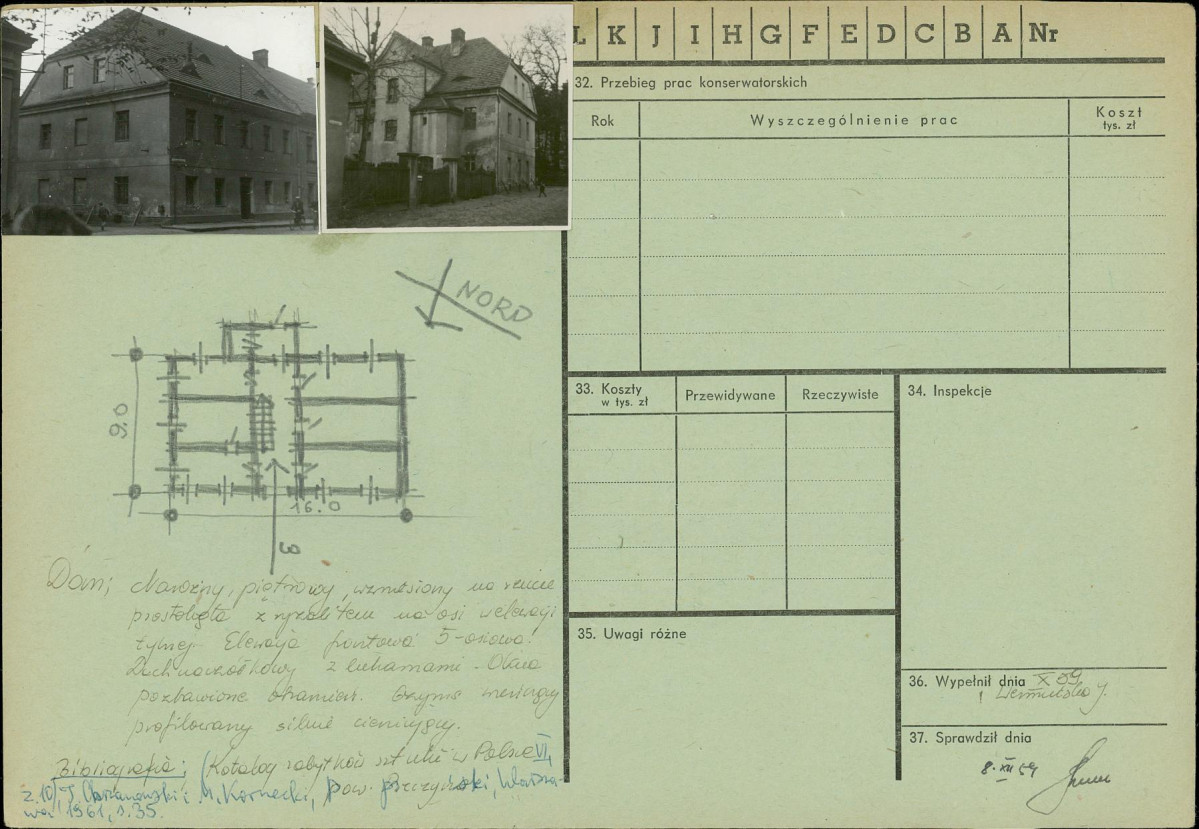 L K J I H G F E D C B A Nr
32. Przebieg prac konserwatorskich
Rok
Wyszczególnienie prac
Koszt
tys. zł
NORD
9.0
16.0
33. Koszty
w tys. zł
Przewidywane
Rzeczywiste
34. Inspekcje
35. Uwagi różne
36. Wypełnił dnia X 59
37. Sprawdził dnia
8. XII 59
Narożny, piętrowy, wzniesiony na rzucie
prostokąta z ryzalitem na osi w elewacji
tylnej. Elewacja frontowa 5-osiowa.
Dach naczółkowy z lukarnami. Okna
pozbawione obramień. Gzyms wieńczący
profilowany silnie cieniujący.
Bibliografia; Katalog zabytków sztuki w Polsce VI,
z. 10, T. Chrzanowski i M. Kornecki, pow. Warsza-
wa 1961, s. 35.